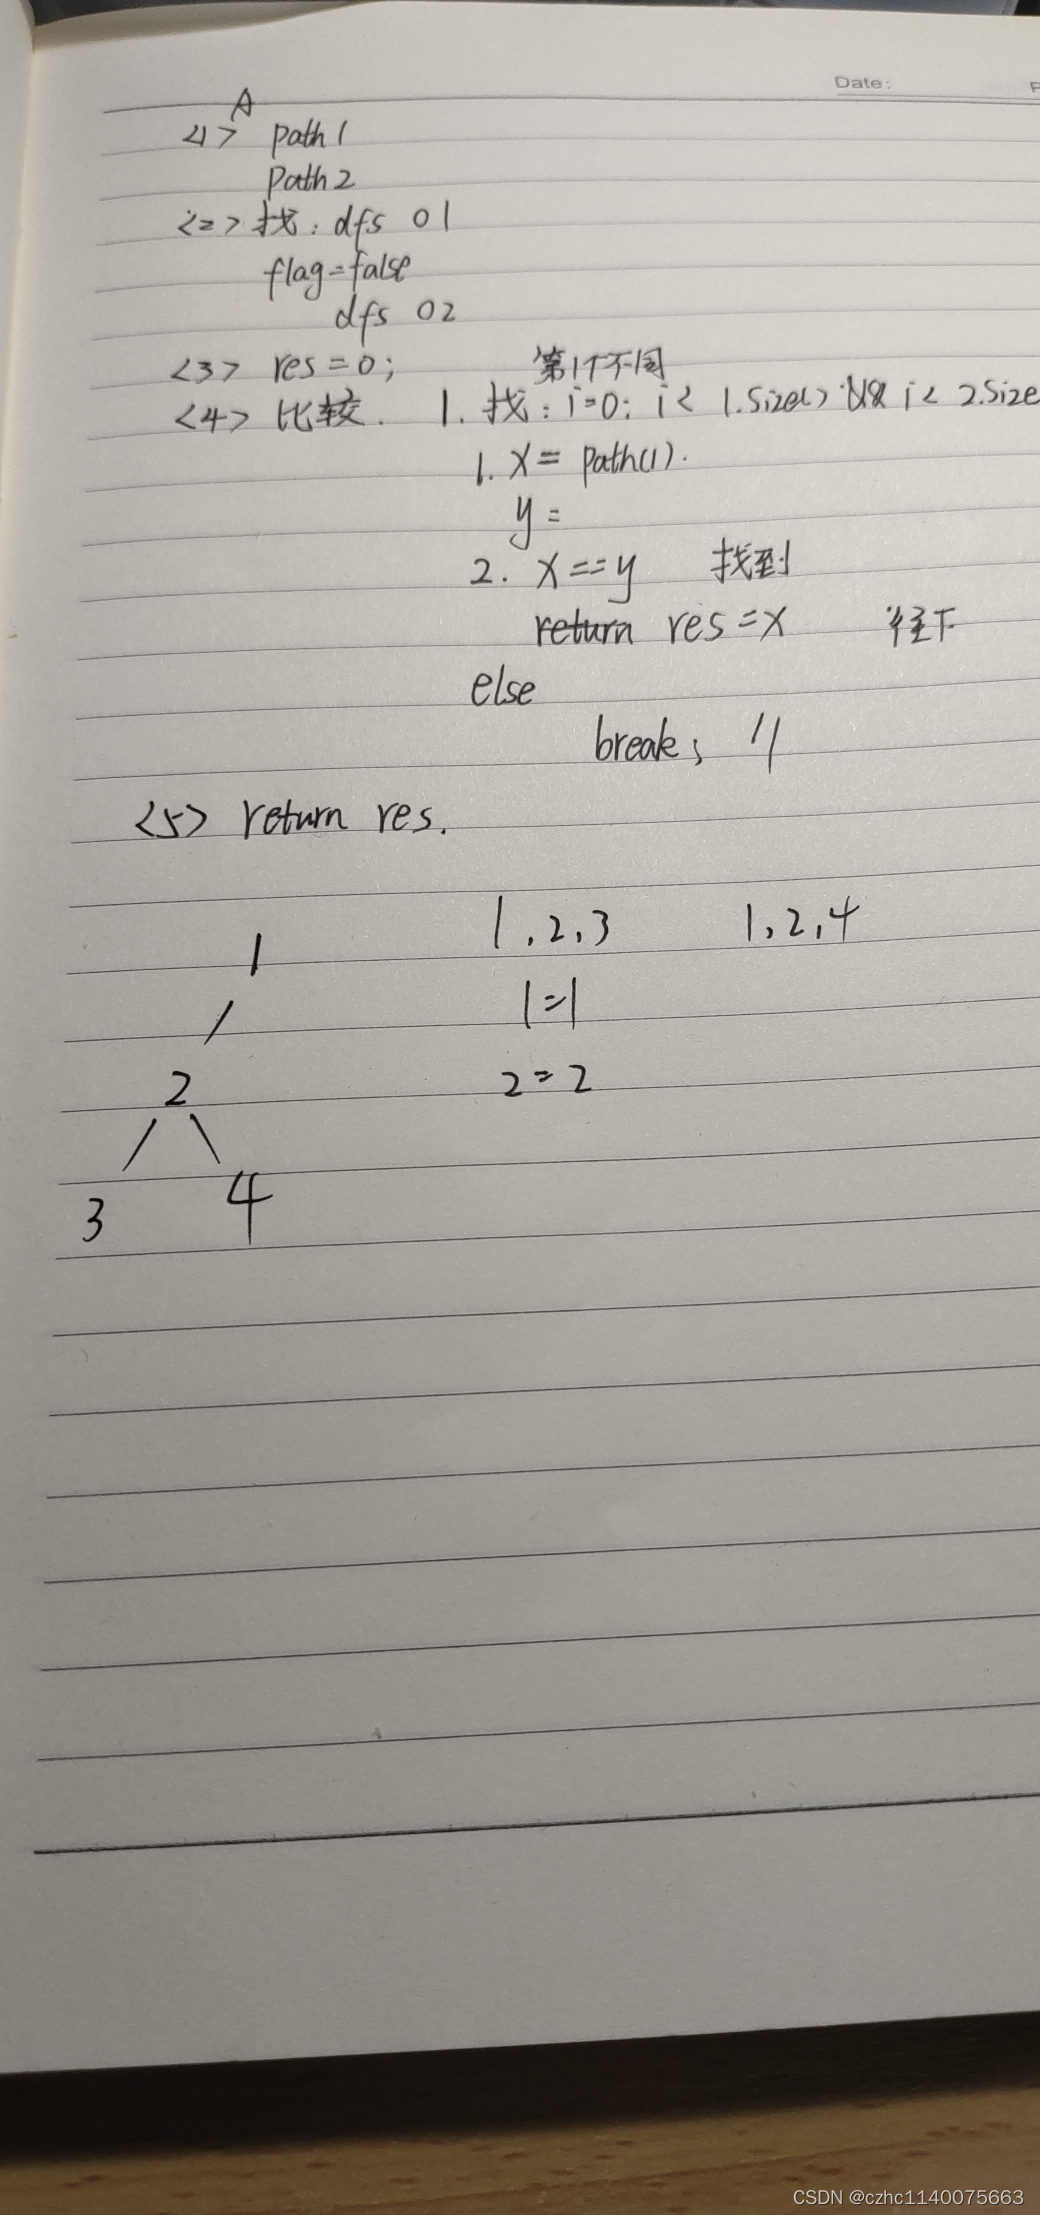 Date:
A
<1> path 1
path 2
<2> 找: dfs 01
flag=false
dfs 02
<3> res=0; 第1个不同
<4> 比较. 1. 找: i=0; i< 1.size() && i< 2.size
1. x= path(1).
y=
2. x==y 找到
return res=x 往下
else
break; //
<5> return res.
1 1,2,3 1,2,4
1=1
2 2=2
3 4
CSDN @czhc1140075663